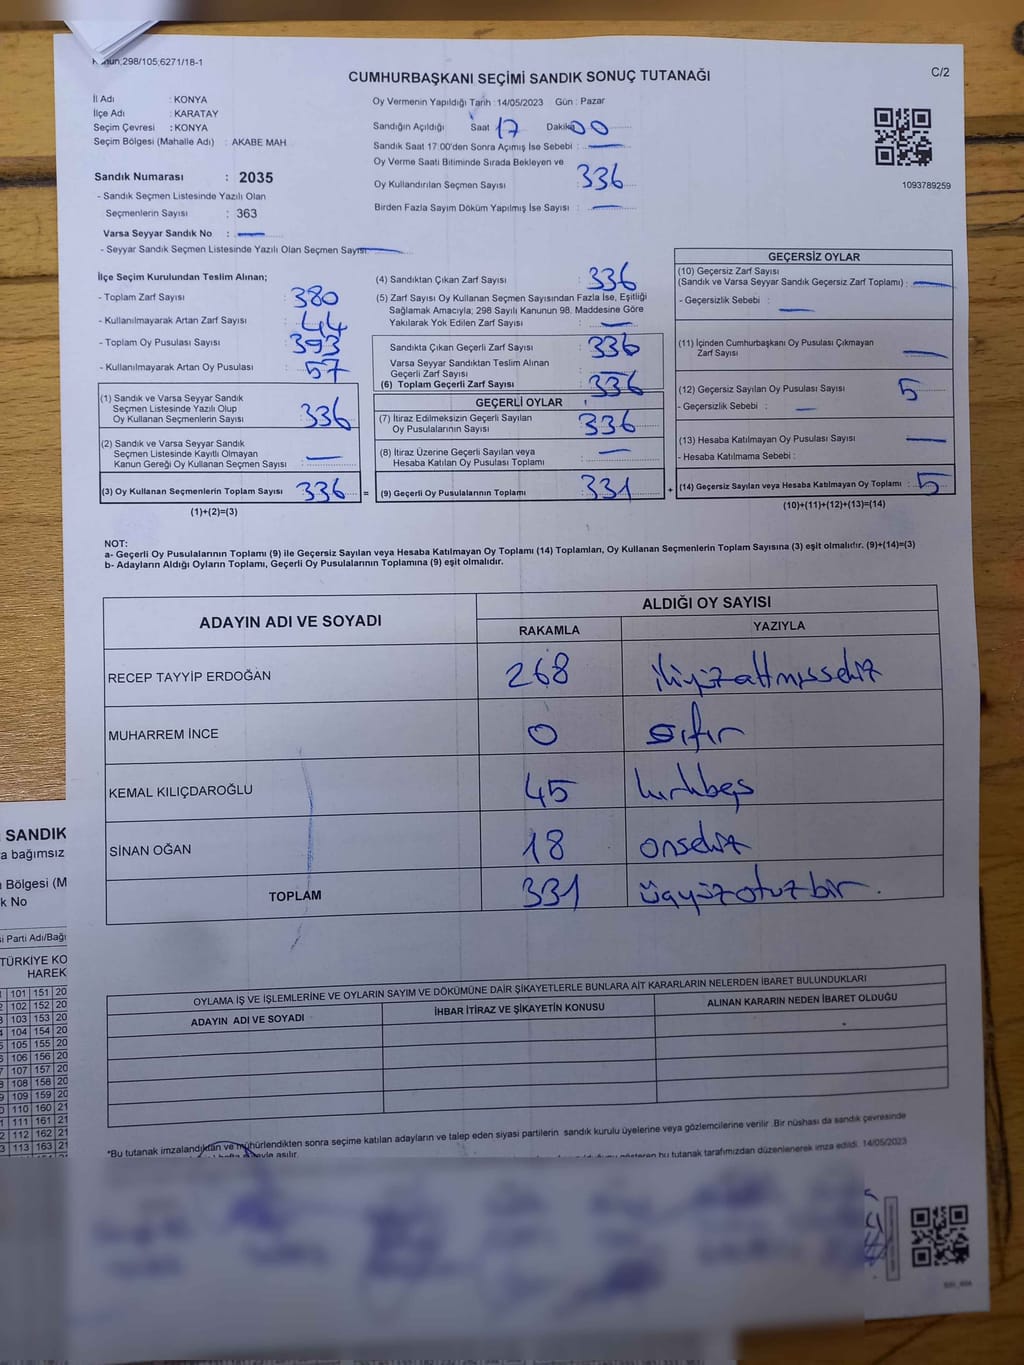 Kanun;298/105;6271/18-1
CUMHURBAŞKANI SEÇİMİ SANDIK SONUÇ TUTANAĞI
C/2
İl Adı : KONYA
İlçe Adı : KARATAY
Seçim Çevresi : KONYA
Seçim Bölgesi (Mahalle Adı) : AKABE MAH
Sandık Numarası : 2035
- Sandık Seçmen Listesinde Yazılı Olan
Seçmenlerin Sayısı : 363
Varsa Seyyar Sandık No : —
- Seyyar Sandık Seçmen Listesinde Yazılı Olan Seçmen Sayısı: —
Oy Vermenin Yapıldığı Tarih : 14/05/2023 Gün : Pazar
Sandığın Açıldığı Saat 17 Dakika 00
Sandık Saat 17:00'den Sonra Açımış İse Sebebi : —
Oy Verme Saati Bitiminde Sırada Bekleyen ve
Oy Kullandırılan Seçmen Sayısı : 336
Birden Fazla Sayım Döküm Yapılmış İse Sayısı : —
1093789259
İlçe Seçim Kurulundan Teslim Alınan;
- Toplam Zarf Sayısı : 380
- Kullanılmayarak Artan Zarf Sayısı : 44
- Toplam Oy Pusulası Sayısı : 393
- Kullanılmayarak Artan Oy Pusulası : 57
(1) Sandık ve Varsa Seyyar Sandık
Seçmen Listesinde Yazılı Olup
Oy Kullanan Seçmenlerin Sayısı : 336
(2) Sandık ve Varsa Seyyar Sandık
Seçmen Listesinde Kayıtlı Olmayan
Kanun Gereği Oy Kullanan Seçmen Sayısı : —
(3) Oy Kullanan Seçmenlerin Toplam Sayısı : 336 =
(1)+(2)=(3)
(4) Sandıktan Çıkan Zarf Sayısı : 336
(5) Zarf Sayısı Oy Kullanan Seçmen Sayısından Fazla İse, Eşitliği
Sağlamak Amacıyla; 298 Sayılı Kanunun 98. Maddesine Göre
Yakılarak Yok Edilen Zarf Sayısı : —
Sandıkta Çıkan Geçerli Zarf Sayısı : 336
Varsa Seyyar Sandıktan Teslim Alınan
Geçerli Zarf Sayısı :
(6) Toplam Geçerli Zarf Sayısı : 336
GEÇERLİ OYLAR
(7) İtiraz Edilmeksizin Geçerli Sayılan
Oy Pusulalarının Sayısı : 336
(8) İtiraz Üzerine Geçerli Sayılan veya
Hesaba Katılan Oy Pusulası Toplamı : —
(9) Geçerli Oy Pusulalarının Toplamı : 331 +
GEÇERSİZ OYLAR
(10) Geçersiz Zarf Sayısı
(Sandık ve Varsa Seyyar Sandık Geçersiz Zarf Toplamı) : —
- Geçersizlik Sebebi : —
(11) İçinden Cumhurbaşkanı Oy Pusulası Çıkmayan
Zarf Sayısı : —
(12) Geçersiz Sayılan Oy Pusulası Sayısı : 5
- Geçersizlik Sebebi : —
(13) Hesaba Katılmayan Oy Pusulası Sayısı : —
- Hesaba Katılmama Sebebi :
(14) Geçersiz Sayılan veya Hesaba Katılmayan Oy Toplamı : 5
(10)+(11)+(12)+(13)=(14)
NOT:
a- Geçerli Oy Pusulalarının Toplamı (9) ile Geçersiz Sayılan veya Hesaba Katılmayan Oy Toplamı (14) Toplamları, Oy Kullanan Seçmenlerin Toplam Sayısına (3) eşit olmalıdır. (9)+(14)=(3)
b- Adayların Aldığı Oyların Toplamı, Geçerli Oy Pusulalarının Toplamına (9) eşit olmalıdır.
ADAYIN ADI VE SOYADI
ALDIĞI OY SAYISI
RAKAMLA YAZIYLA
RECEP TAYYİP ERDOĞAN 268 ikiyüzaltmışsekiz
MUHARREM İNCE 0 sıfır
KEMAL KILIÇDAROĞLU 45 kırkbeş
SİNAN OĞAN 18 onsekiz
TOPLAM 331 üçyüzotuzbir.
OYLAMA İŞ VE İŞLEMLERİNE VE OYLARIN SAYIM VE DÖKÜMÜNE DAİR ŞİKAYETLERLE BUNLARA AİT KARARLARIN NELERDEN İBARET BULUNDUKLARI
ADAYIN ADI VE SOYADI İHBAR İTİRAZ VE ŞİKAYETİN KONUSU ALINAN KARARIN NEDEN İBARET OLDUĞU
*Bu tutanak imzalandıktan ve mühürlendikten sonra seçime katılan adayların ve talep eden siyasi partilerin sandık kurulu üyelerine veya gözlemcilerine verilir .Bir nüshası da sandık çevresinde
gösteren bu tutanak tarafımızdan düzenlenerek imza edildi. 14/05/2023
SANDIK
a bağımsız
Bölgesi (M
k No
i Parti Adı/Bağı
TÜRKİYE KO
HAREK
101 151 20
102 152 20
103 153 20
104 154 20
105 155 20
106 156 20
107 157 20
108 158 20
109 159 20
110 160 21
111 161 21
112 162 21
113 163 21